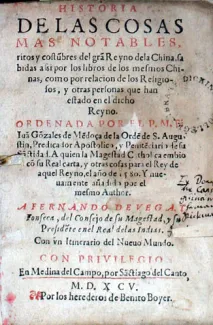 HISTORIA
DE LAS COSAS
MAS NOTABLES,
ritos y costũbres del grã Reyno dela China, sa
bidas assi por los libros de los mesmos Chi
nas, como por relacion de los Religio
sos, y otras personas que han
estado en el dicho
Reyno.
ORDENADA POR EL P. M. F.
Iuã Gõzales de Mẽdoça de la Ordẽ de S. Augu
stin, Predicador Apostolico, y Penitẽciario de su
Sãctidad. A quien la Magestad C. embio
cõ su Real carta, y otras cosas para el Rey de
aquel Reyno, el año de 1580. Y nue
uamente añadida por el
mesmo Author.
A FERNANDO DE VEGA Y
Fonseca, del Consejo de su Magestad, y su
Presidẽte en el Real de las Indias.
Con vn Itinerario del Nueuo Mundo.
CON PRIVILEGIO
En Medina del Campo, por Sãctiago del Canto,
M. D. X C V.
Por los herederos de Benito Boyer.